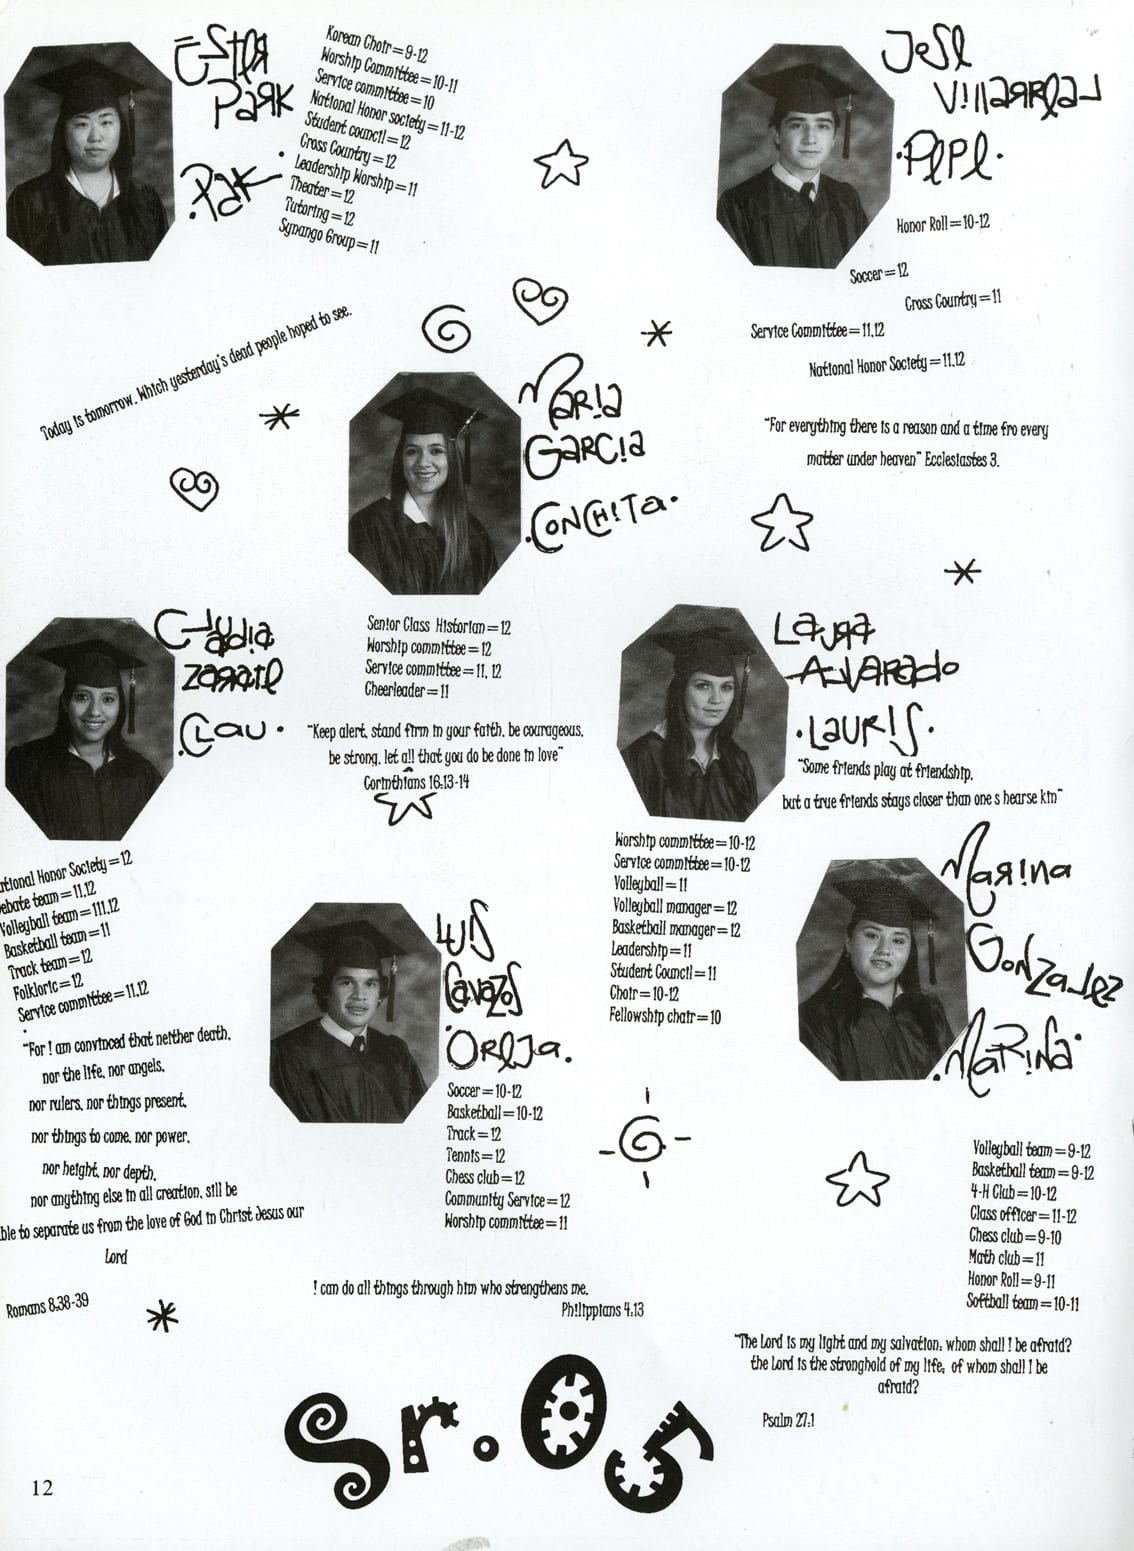 Ester
Park
.Pak.
Korean Choir=9-12
Worship Committee=10-11
Service committee=10
National Honor society=11-12
Student council=12
Cross Country=12
Leadership Worship=11
Theater=12
Tutoring=12
Synango Group=11
Today is tomorrow. Which yesterday's dead people hoped to see.
Jose
Villarreal
.Pepe.
Honor Roll=10-12
Soccer=12
Cross Country=11
Service Committee=11,12
National Honor Society=11,12
"For everything there is a reason and a time fro every
matter under heaven" Ecclesiastes 3.
Maria
Garcia
.Conchita.
Senior Class Historian=12
Worship committee=12
Service committee=11, 12
Cheerleader=11
"Keep alert, stand firm in your faith, be courageous,
be strong, let all that you do be done in love"
Corinthians 16,13-14
Claudia
Zarate
.Clau.
ational Honor Society=12
ebate team=11,12
Volleyball team=111,12
Basketball team=11
Track team=12
Folkloric=12
Service committee=11,12
.
"For I am convinced that neither death,
nor the life, nor angels,
nor rulers, nor things present,
nor things to come, nor power,
nor height, nor depth,
nor anything else in all creation, sill be
ble to separate us from the love of God in Christ Jesus our
Lord
Romans 8,38-39
Laura
Alvarado
.Lauris.
"Some friends play at friendship,
but a true friends stays closer than one s hearse kin"
Worship committee=10-12
Service committee=10-12
Volleyball=11
Volleyball manager=12
Basketball manager=12
Leadership=11
Student Council=11
Choir=10-12
Fellowship chair=10
Luis
Cavazos
.Oreja.
Soccer=10-12
Basketball=10-12
Track=12
Tennis=12
Chess club=12
Community Service=12
Worship committee=11
I can do all things through him who strengthens me.
Philippians 4,13
Marina
Gonzalez
.Marina.
Volleyball team=9-12
Basketball team=9-12
4-H Club=10-12
Class officer=11-12
Chess club=9-10
Math club=11
Honor Roll=9-11
Softball team=10-11
"The Lord is my light and my salvation, whom shall I be afraid?
the Lord is the stronghold of my life, of whom shall I be
afraid?
Psalm 27,1
Sr.05
12